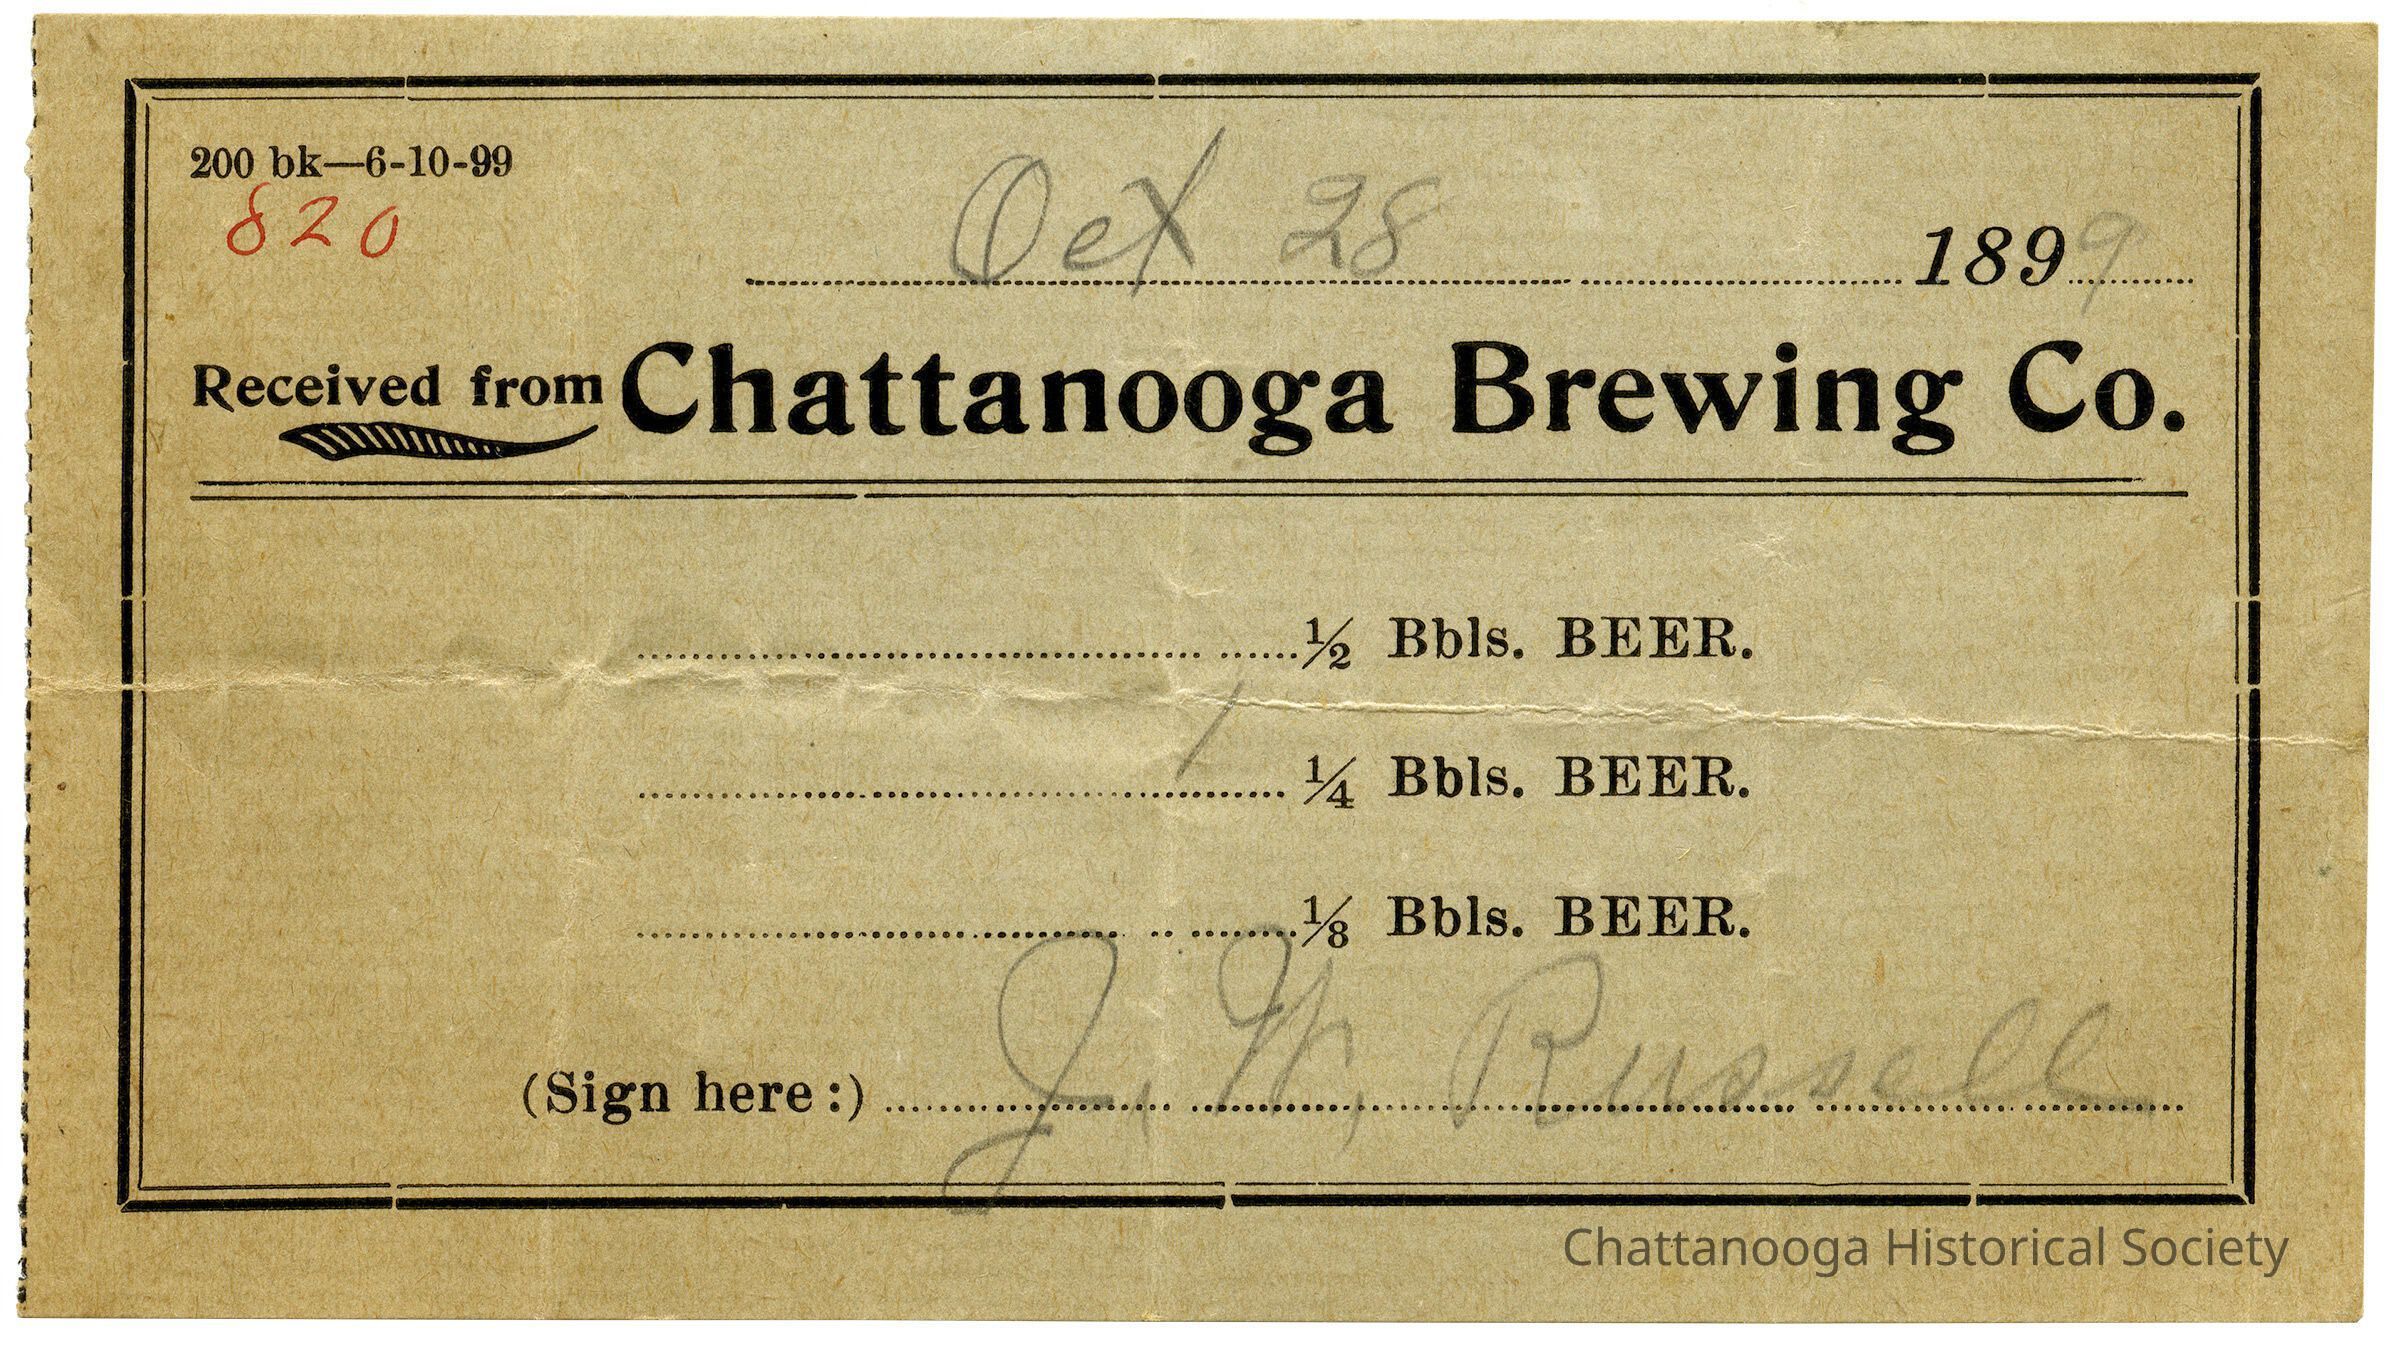 200 bk—6-10-99
820
Oct 28 1899
Received from Chattanooga Brewing Co.
½ Bbls. BEER.
1 ¼ Bbls. BEER.
⅛ Bbls. BEER.
(Sign here:) J. W. Russell
Chattanooga Historical Society